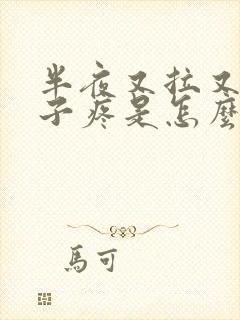 半夜又拉又
子疼是怎麼
馬可